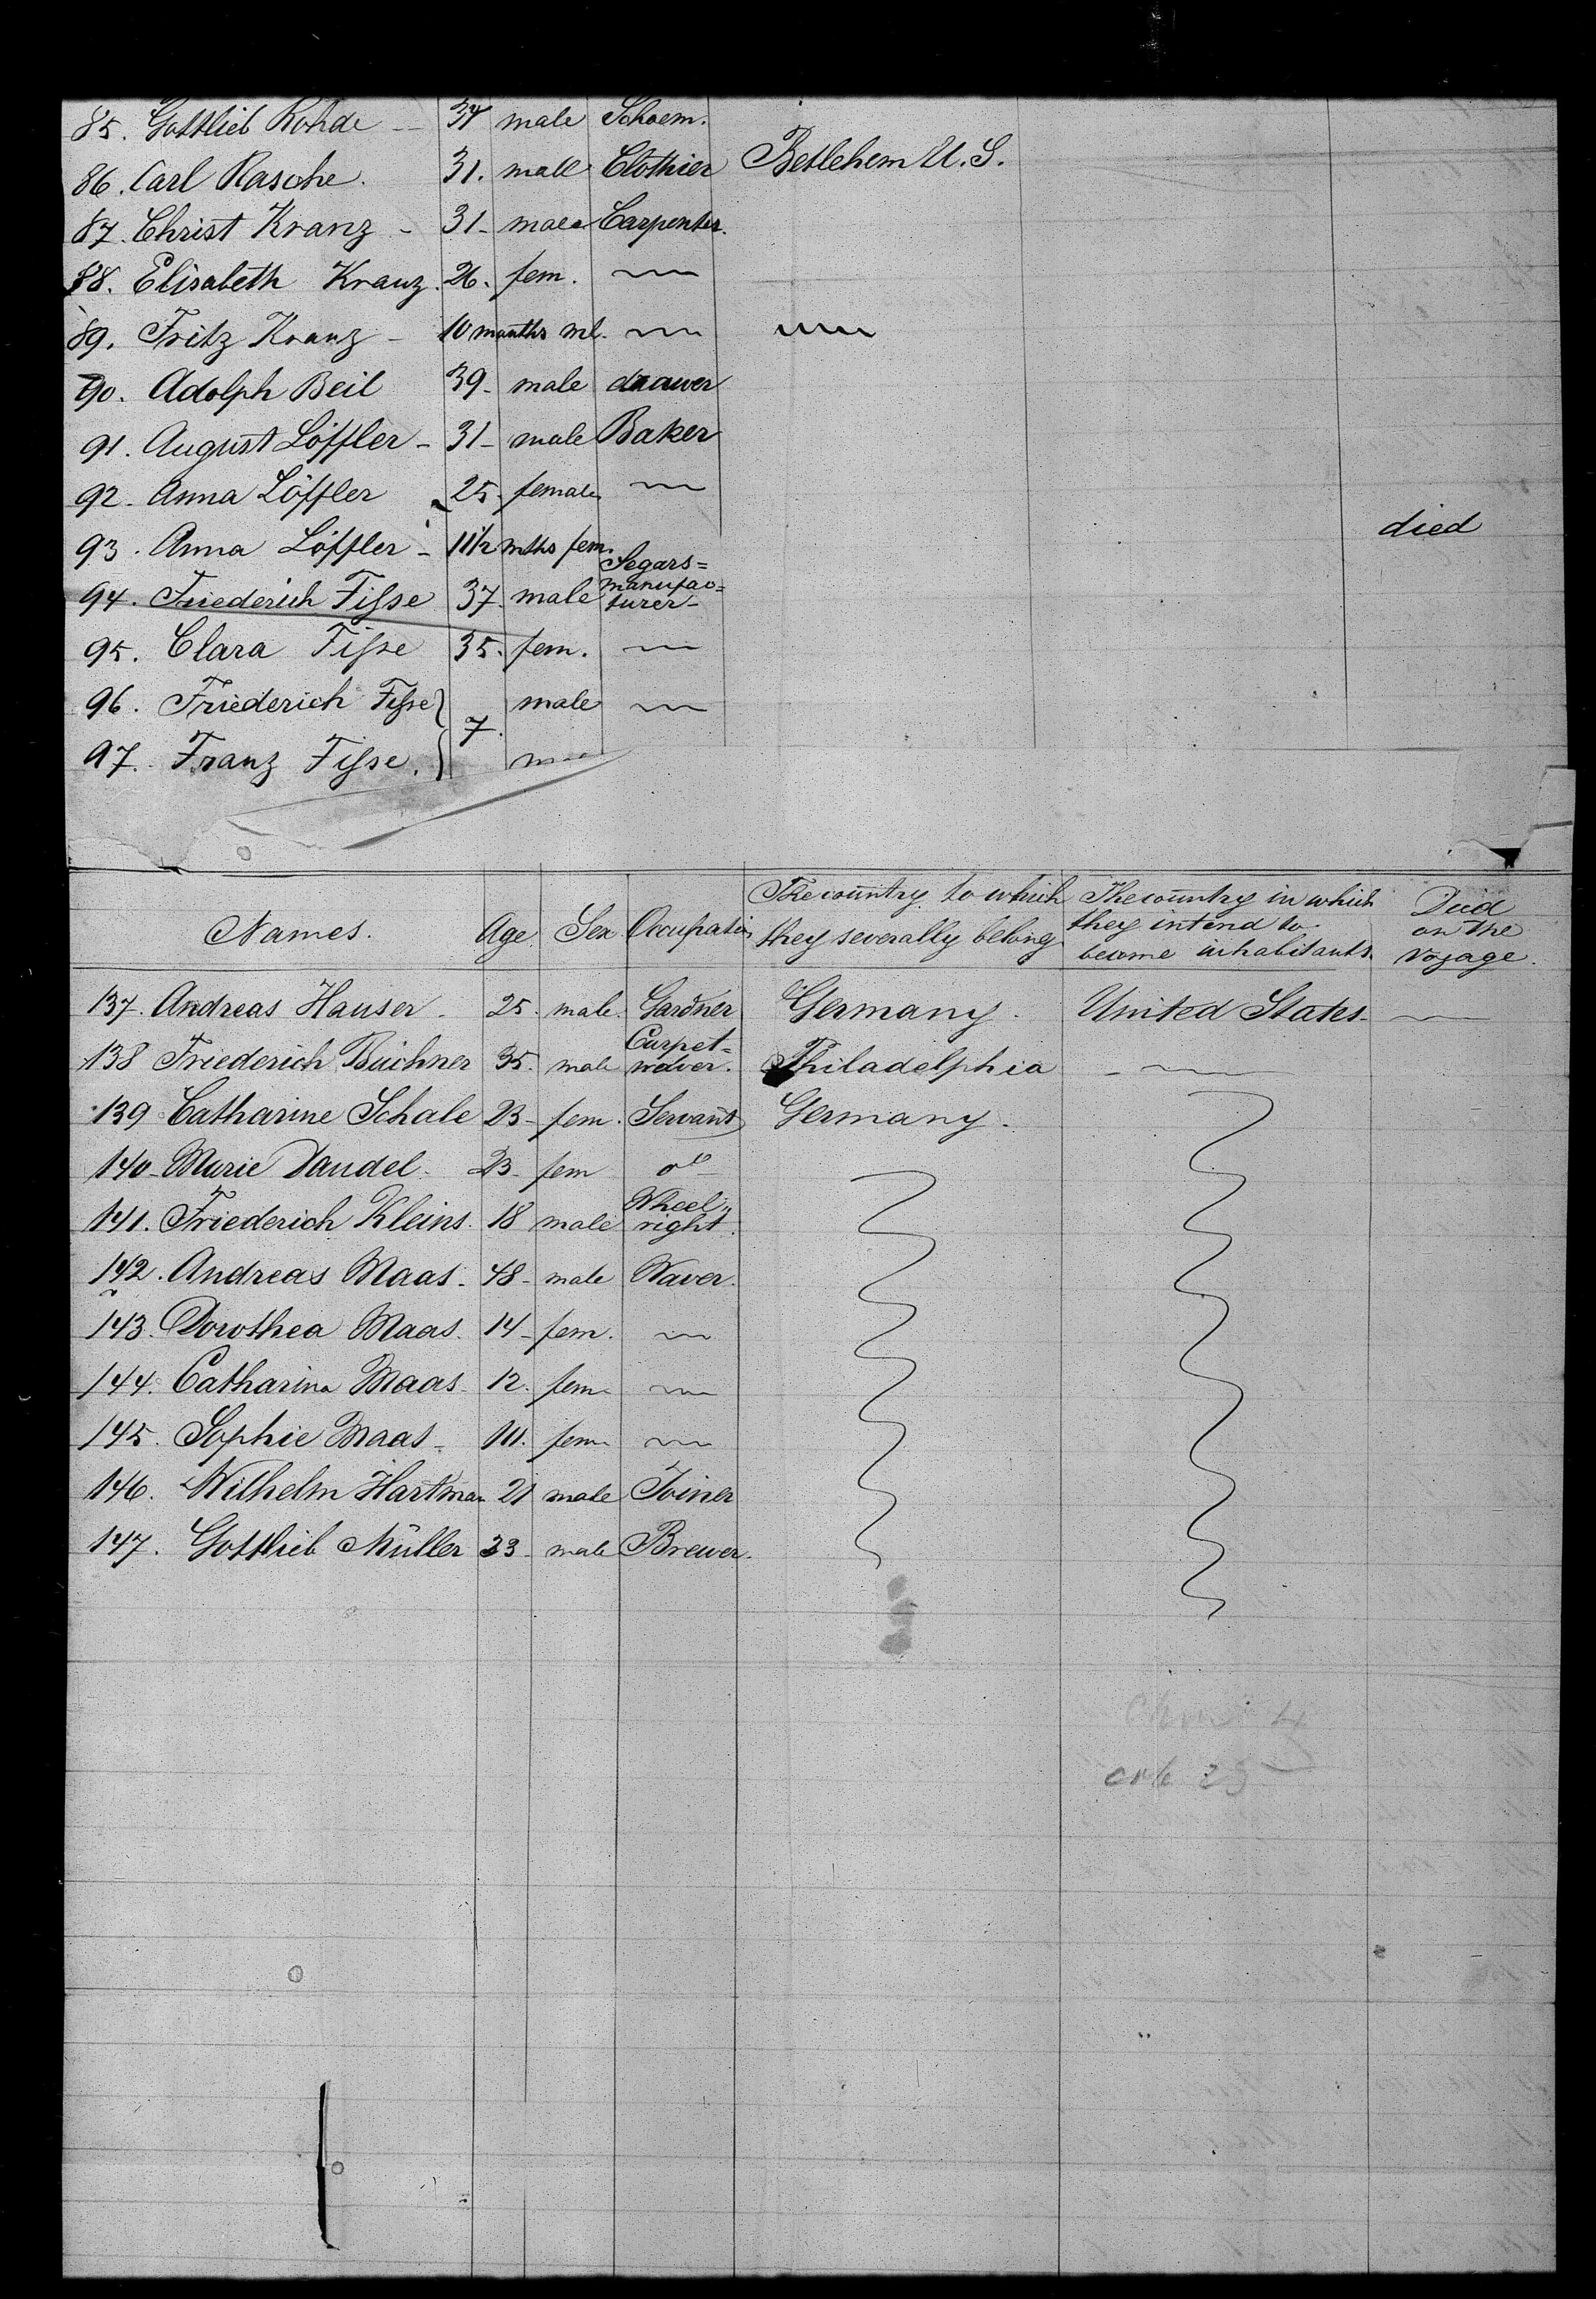 85. Gottlieb Rohde 37 male Schoem.
86. Carl Rasche. 31. male Clothier Betlehem U. S.
87. Christ Kranz - 31 - male Carpenter.
88. Elisabeth Kranz. 26. fem.
89. Fritz Kranz - 10 months ml.
90. Adolph Beil 39 - male drawer
91. August Löffler - 31 - male Baker
92. Anna Löffler 25. female
93. Anna Löffler - 11 1/2 mths fem. died
94. Friederich Fiſse 37. male Segars=
manufac=
turer -
95. Clara Fiſse 35. fem.
96. Friederich Fiſse } male
7.
97. Franz Fiſse. }
Names. Age Sex Occupation The country to which they severally belong. The country in which they intend to become inhabitants. Died on the voyage.
137. Andreas Hauser. 25. male. Gardner Germany. United States.
138 Friederich Büchner 35. male Carpet=
wever. Philadelphia
139 Catharine Schale 23 - fem. Servant Germany.
140 - Marie Daudel. 23 - fem do
141. Friederich Kleins. 18 male Wheel=
right.
142. Andreas Maas. 48 - male Waver.
143. Dorothea Maas. 14 - fem.
144. Catharina Maas. 12. fem
145. Sophie Maas - 10. fem
146. Wilhelm Hartman 21 male Joiner
147. Gottlieb Müller 33 - male Brewer.